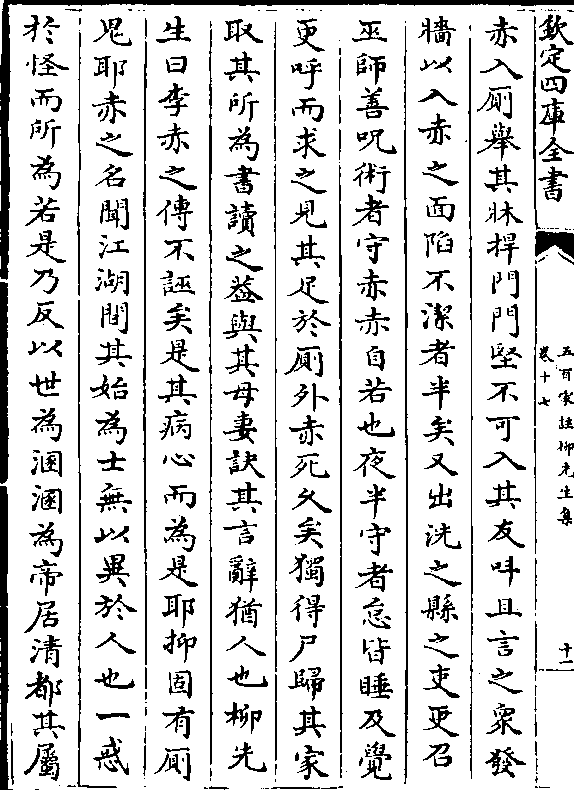 欽定四庫全書
五百家註柳先生集
卷十七
十一
赤入厠舉其牀捍門門堅不可入其友呌且言之衆發
牆以入赤之面陷不潔者半矣又出洗之縣之吏更召
巫師善呪術者守赤赤自若也夜半守者怠皆睡及覺
更呼而求之見其足於厠外赤死久矣獨得尸歸其家
取其所為書讀之葢與其母妻訣其言辭猶人也柳先
生曰李赤之傳不誣矣是其病心而為是耶抑固有厠
鬼耶赤之名聞江湖間其始為士無以異於人也一惑
於怪而所為若是乃反以世為溷溷為帝居清都其屬